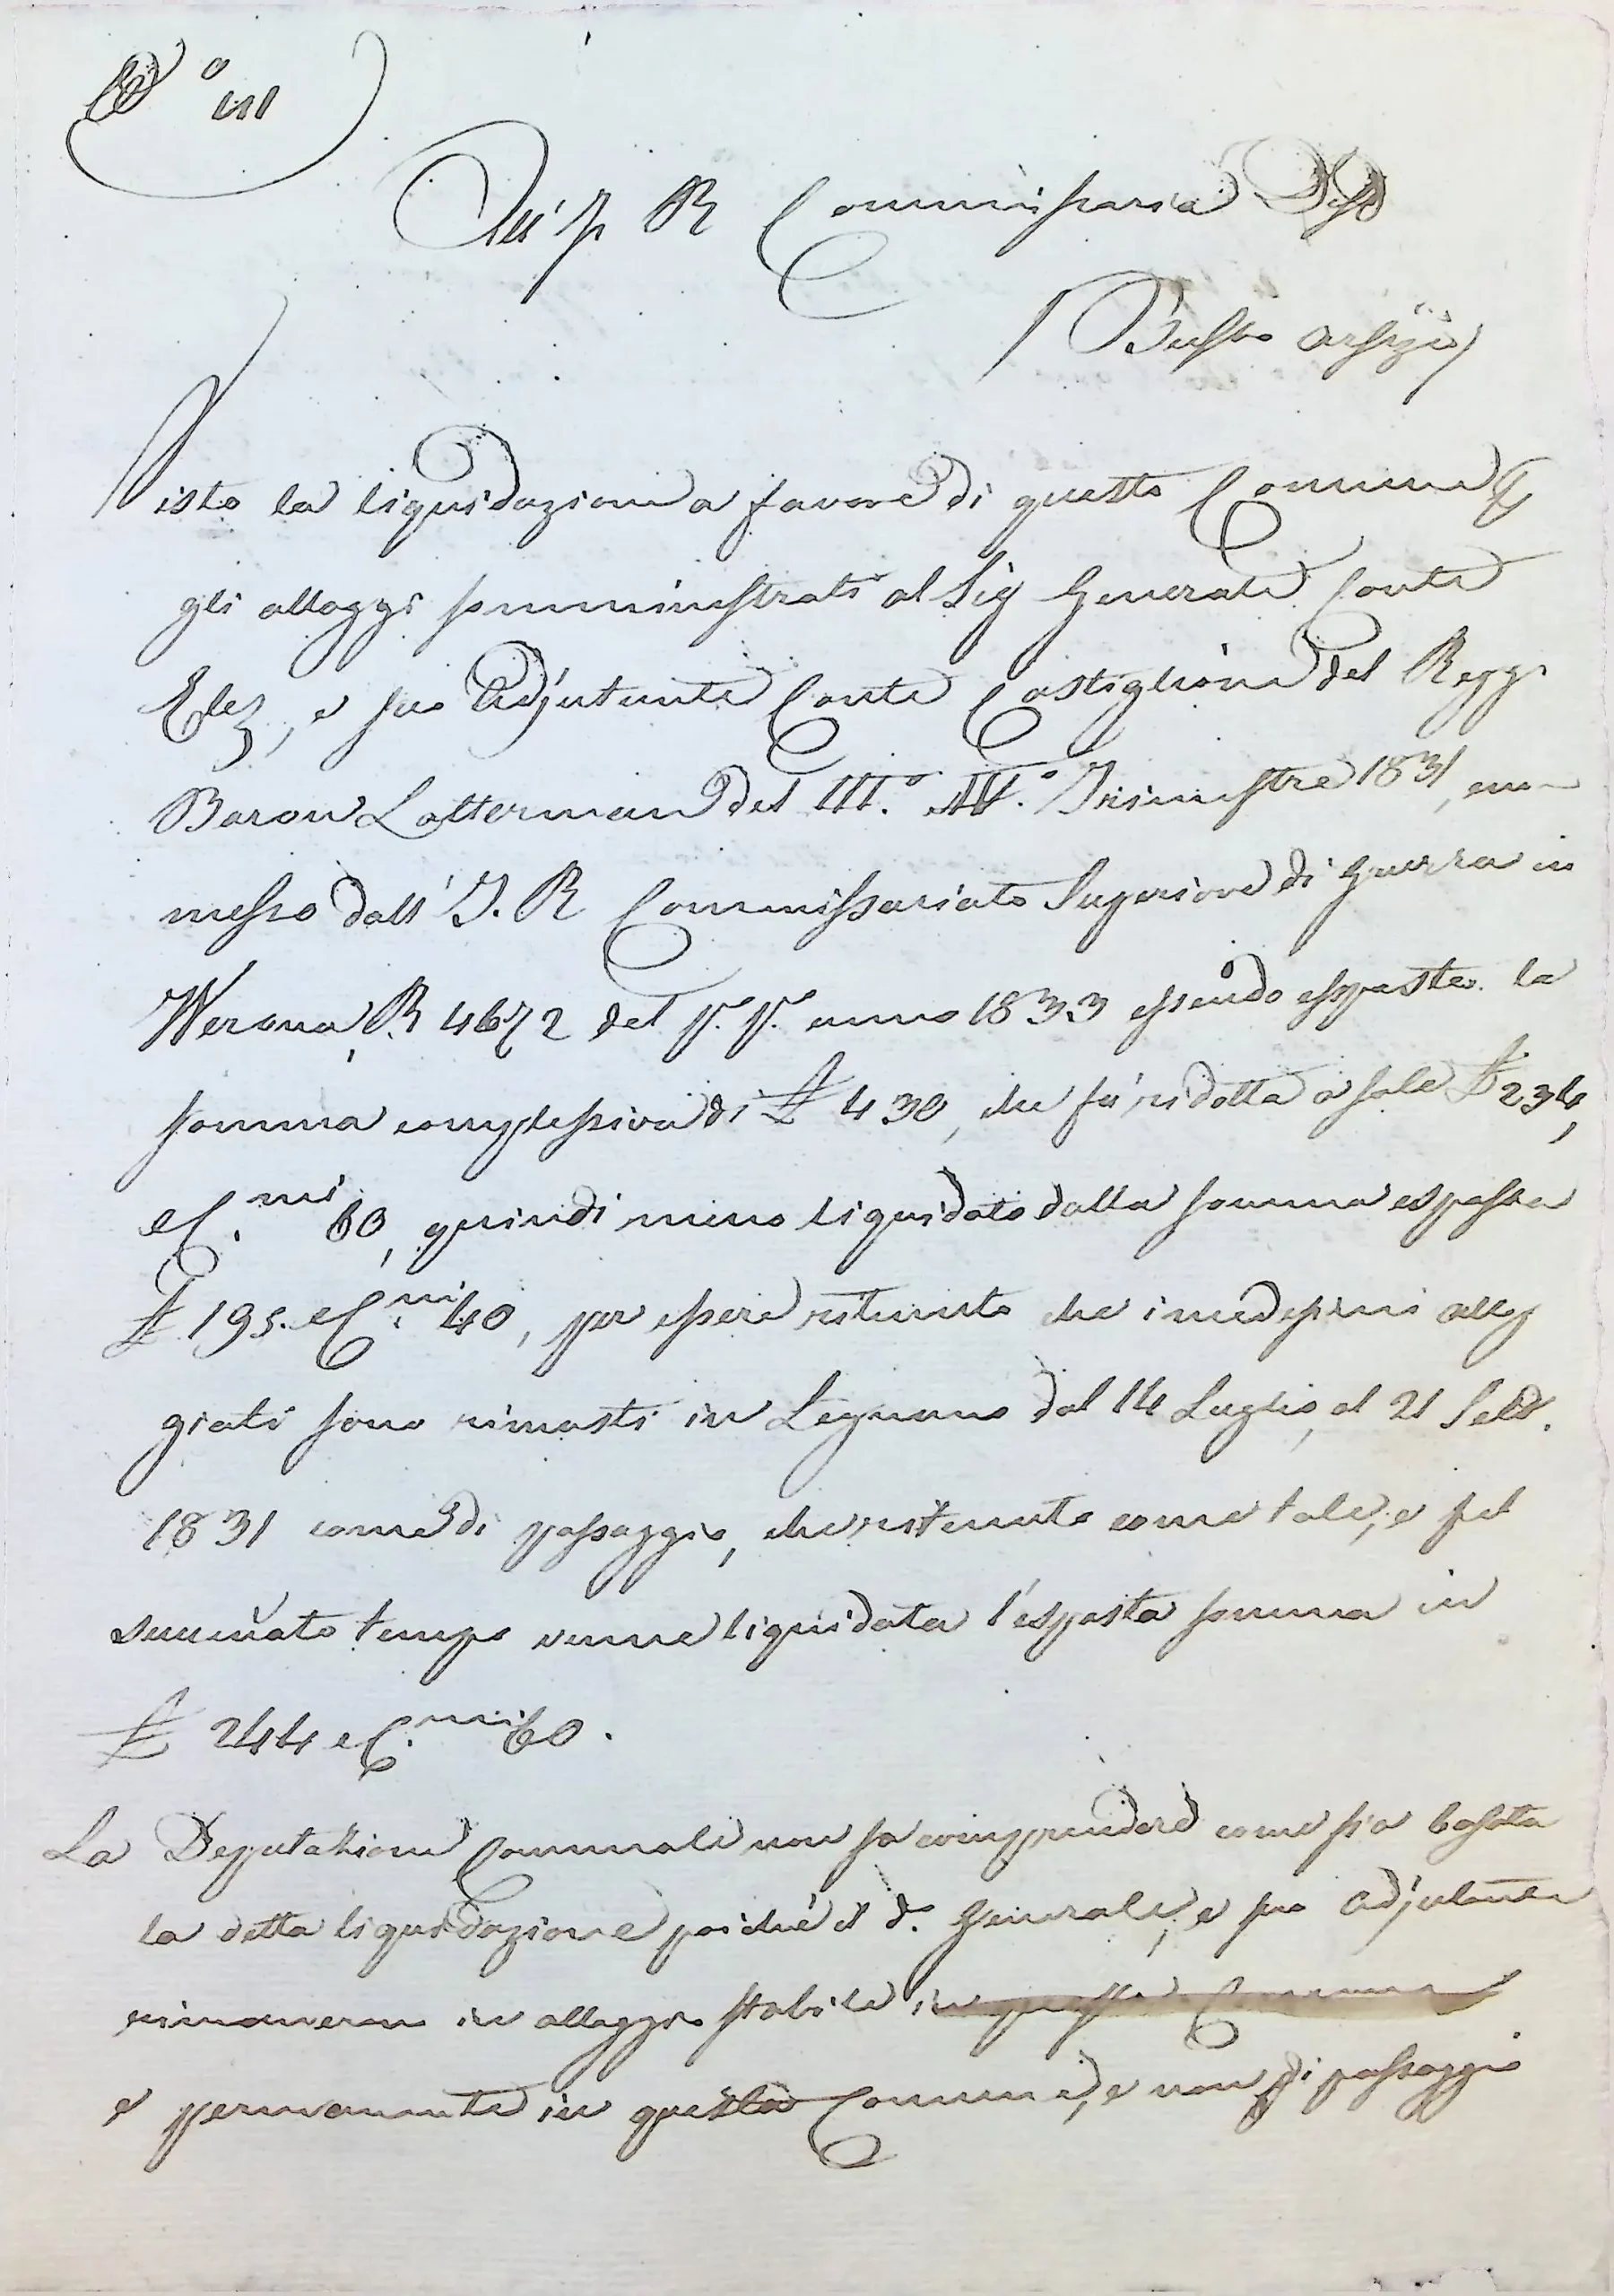 All' I R Commissaria Dist
Busto Arsizio
Visto la liquidazione a favore di questo Comune
gli alloggi somministrati al Sig Generale Conte
e suo Adjutante Conte Castiglione del Regg
Baron Latterman del III.o IV.o Trimestre 1831, em
messo dall' I. R Commissariato Superiore di Guerra in
Werona, R 4672 del p. p. anno 1833 essendo esposta la
somma complessiva di £ 430, che fu ridotta a sole £ 234,
e C.mi 60, quindi meno liquidato dalla somma esposta
£ 195. e C.mi 40, per essere ritenuto che i medesimi allog
giati sono rimasti in Legnano dal 14 Luglio, al 21
1831 come di passaggio, che ritenuto come tale, e pel
succennato tempo venne liquidata l'esposta somma in
£ 244 e C.mi 60.
La Deputazione Comunale non sa comprendere come sia basata
la detta liquidazione poiché il d.o Generale, e suo Adjutante
rimanerono in alloggio stabile in questa Comune
e permanente in questa Comune, e non di passaggio